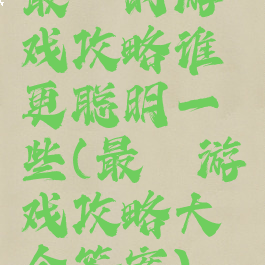 最 的游
戏攻略谁
更聪明一
些(最 游
戏攻略大
全答案)